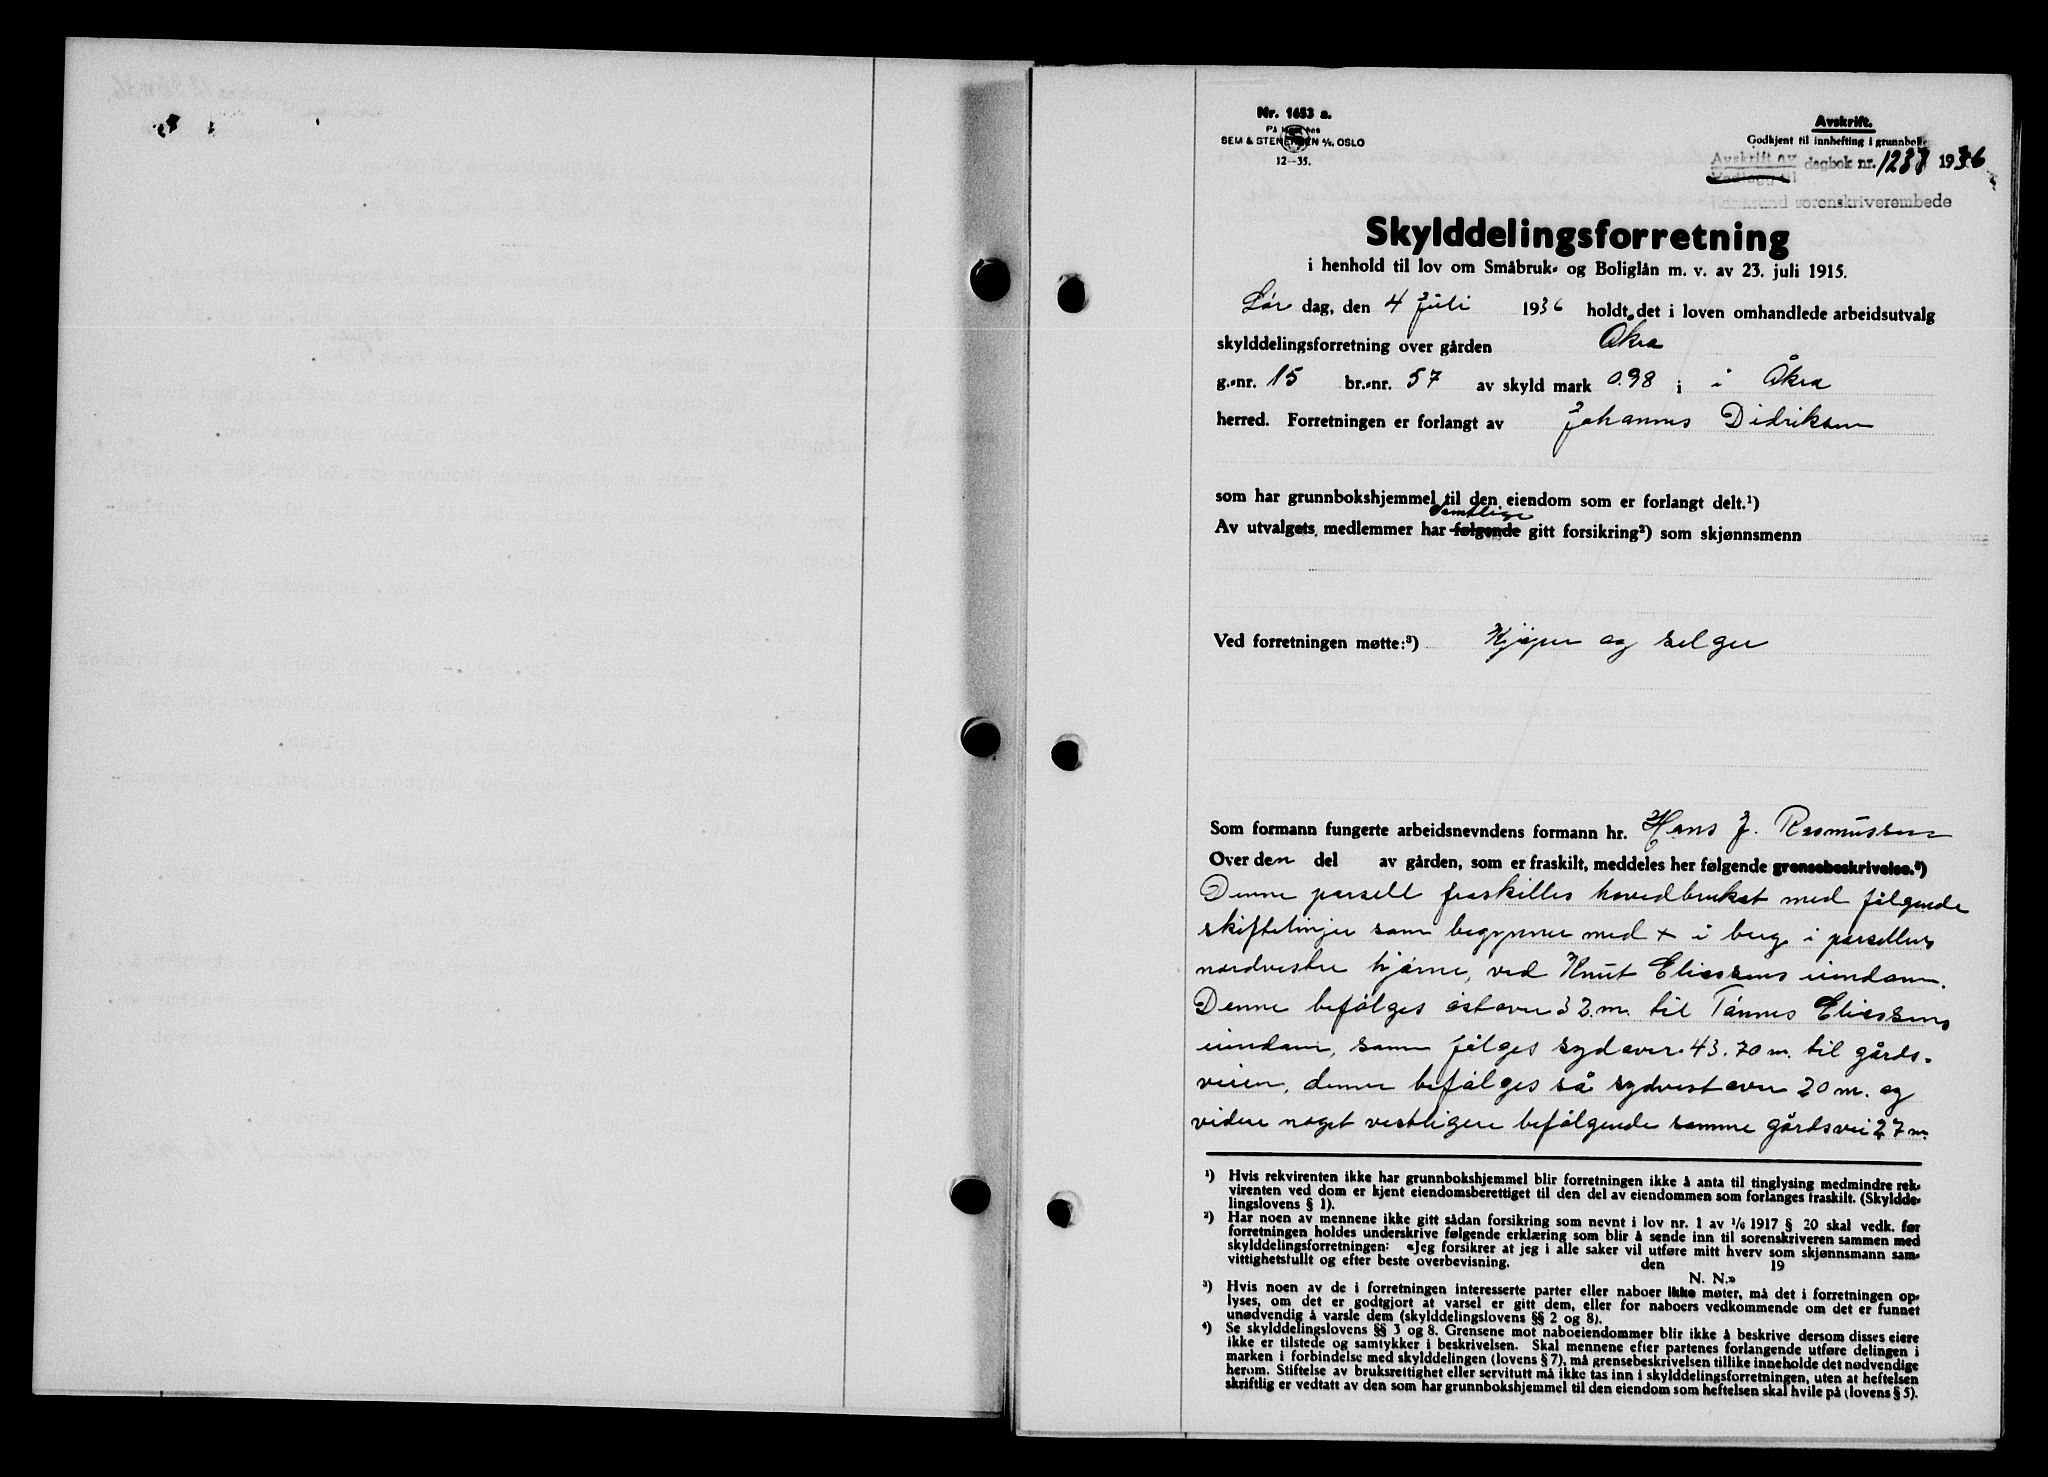 Nr. 1653 a.
På lager hos
SEM & STENERSEN A/S, OSLO
12—35.
Avskrift.
Godkjent til innhefting i grunnboken
Avskrift av
Vedlegg til
dagbok nr. 1237 1936
sorenskriverembede
Skylddelingsforretning
i henhold til lov om Småbruk- og Boliglån m. v. av 23. juli 1915.
Lør dag, den 4 Juli 1936 holdt det i loven omhandlede arbeidsutvalg
skylddelingsforretning over gården Åkra
g.-nr. 15 br.-nr. 57 av skyld mark 0.98 i i Åkra
herred. Forretningen er forlangt av Johannes Didriksen
som har grunnbokshjemmel til den eiendom som er forlangt delt.¹)
samtlige
Av utvalgets medlemmer har følgende gitt forsikring²) som skjønnsmenn
Ved forretningen møtte:³) Kjøper og selger
Som formann fungerte arbeidsnevndens formann hr. Hans J. Rasmussen
Over den del av gården, som er fraskilt, meddeles her følgende grensebeskrivelse.⁴)
Denne parsell fraskilles hovedbruket med følgende
skiftelinjer som begynner med + i berg i parsellens
nordvestre hjørne, ved Knut Eliassens eiendom.
Denne befølges østover 32 m. til Tønnes Eliassens
eiendom, som følges sydover 43.70 m. til gårds-
veien, denne befølges så sydvestover 20 m. og
videre noget vestligere befølgende samme gårdsvei 27 m.
¹) Hvis rekvirenten ikke har grunnbokshjemmel blir forretningen ikke å anta til tinglysing medmindre rek-
virenten ved dom er kjent eiendomsberettiget til den del av eiendommen som forlanges fraskilt. (Skyldde-
lingslovens § 1).
²) Har noen av mennene ikke gitt sådan forsikring som nevnt i lov nr. 1 av 1/6 1917 § 20 skal vedk. før
forretningen holdes underskrive følgende erklæring som blir å sende inn til sorenskriveren sammen med
skylddelingsforretningen: «Jeg forsikrer at jeg i alle saker vil utføre mitt hverv som skjønnsmann sam-
vittighetsfullt og efter beste overbevisning. den 19
N. N.»
³) Hvis noen av de i forretningen interesserte parter eller naboer ikke møter, må det i forretningen op-
lyses, om det er godtgjort at varsel er gitt dem, eller for naboers vedkommende om det er funnet
unødvendig å varsle dem (skylddelingslovens §§ 2 og 8).
⁴) Se skylddelingslovens §§ 3 og 8. Grensene mot naboeiendommer blir ikke å beskrive dersom disses eiere
ikke er tilstede og samtykker i beskrivelsen. Skal mennene efter partenes forlangende utføre delingen i
marken i forbindelse med skylddelingen (lovens § 7), må grensebeskrivelsen tillike inneholde det nødvendige
herom. Stiftelse av bruksrettighet eller servitutt må ikke tas inn i skylddelingsforretningen, uten at heftelsen
skriftlig er vedtatt av den som har grunnbokshjemmel til den eiendom som heftelsen skal hvile på (lovens § 5).